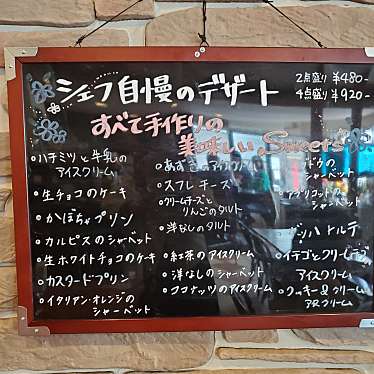 シェフ自慢のデザート
2点盛り ¥480-
4点盛り ¥920-
すべて手作りの
美味しい Sweets
ハチミツと牛乳の
アイスクリーム
生チョコのケーキ
かぼちゃプリン
カルピスのシャーベット
生ホワイトチョコのケーキ
カスタードプリン
イタリアン・オレンジの
シャーベット
あずきのアイスクリーム
スフレチーズ
クリームチーズと
りんごのタルト
洋なしのタルト
紅茶のアイスクリーム
洋なしのシャーベット
ココナッツのアイスクリーム
シャーベット
アプリコットの
シャーベット
イチゴと
アイスクリーム
クッキー&クリーム
アイスクリーム